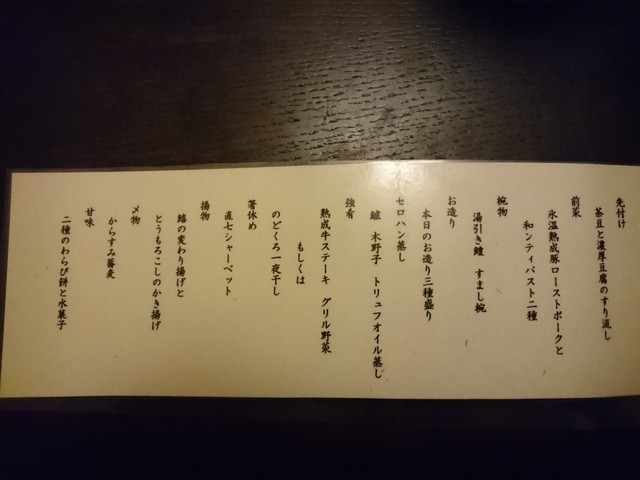 先付け
茶豆と濃厚豆腐のすり流し
前菜
氷温熟成豚ローストポークと
和ンティパスト二種
椀物
湯引き鱧　すまし椀
お造り
本日のお造り三種盛り
セロハン蒸し
鱸　木野子　トリュフオイル蒸し
強肴
熟成牛ステーキ　グリル野菜
もしくは
のどくろ一夜干し
箸休め
直七シャーベット
揚物
鱚の変わり揚げと
とうもろこしのかき揚げ
〆物
からすみ蕎麦
甘味
二種のわらび餅と水菓子